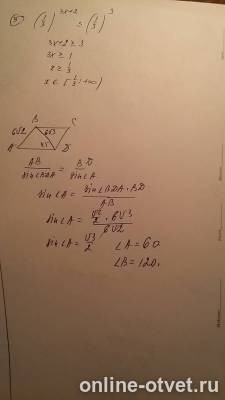 (1/3)^3x+2 ≤ (1/3)^3
3x+2 ≥ 3
3x ≥ 1
x ≥ 1/3
x ∈ [1/3; +∞)
B C
6√2 6√3
A 45 D
AB/sin∠BDA = BD/sin∠A
sin∠A = sin∠BDA · BD/AB
sin∠A = √2/2 · 6√3/6√2
sin∠A = √3/2 ∠A = 60
∠B = 120.
online-otvet.ru